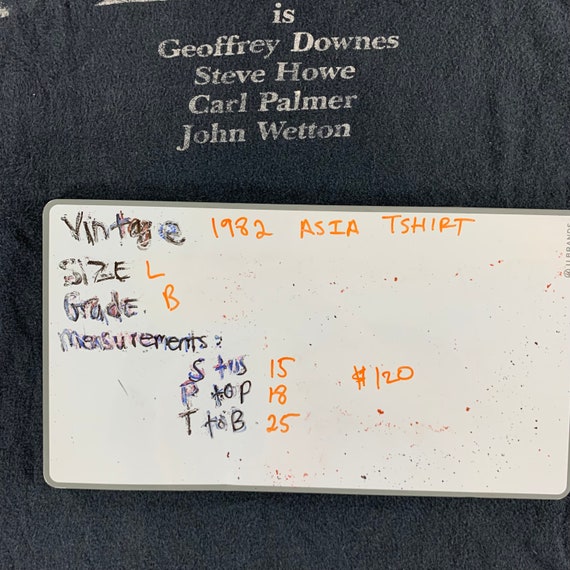 is
Geoffrey Downes
Steve Howe
Carl Palmer
John Wetton
Vintage 1982 ASIA TSHIRT
SIZE L
Grade. B
measurements:
S to S 15
P to P 18
T to B 25
$120